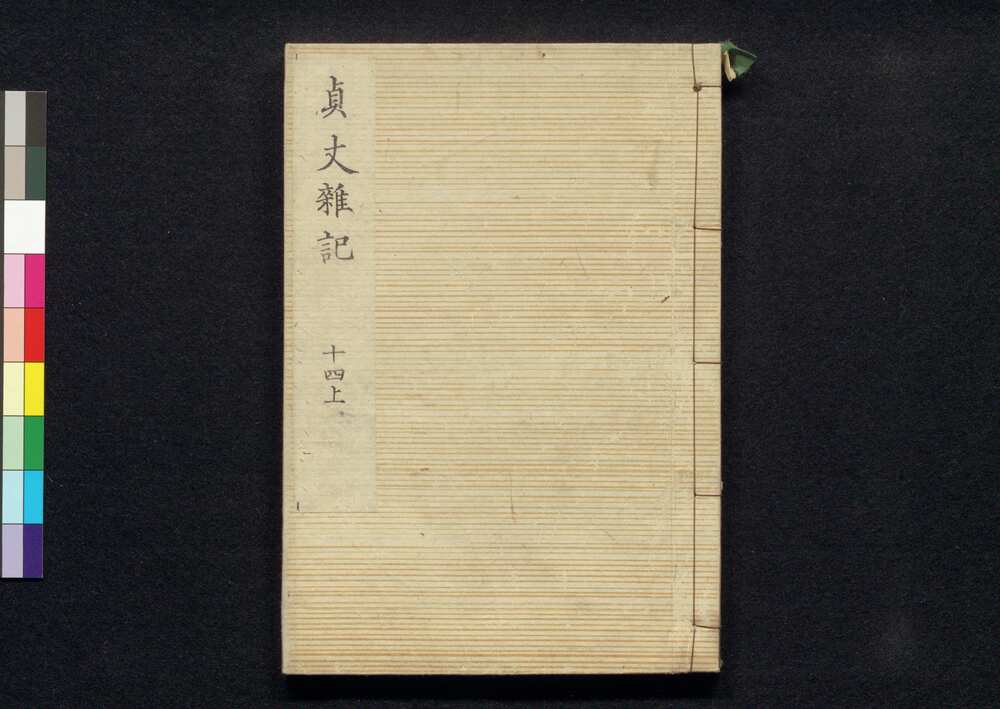 貞丈雜記
十四上